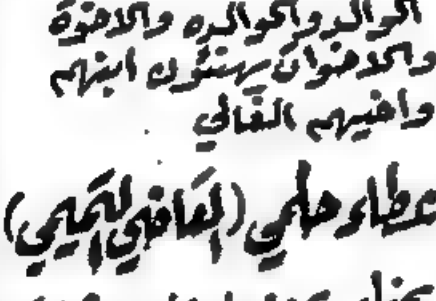 الوالد والوالده والاخوة
والاخوان يهنئون ابنهم
واخيهم الغالي
عطاء حلمي (القاضي التميمي)